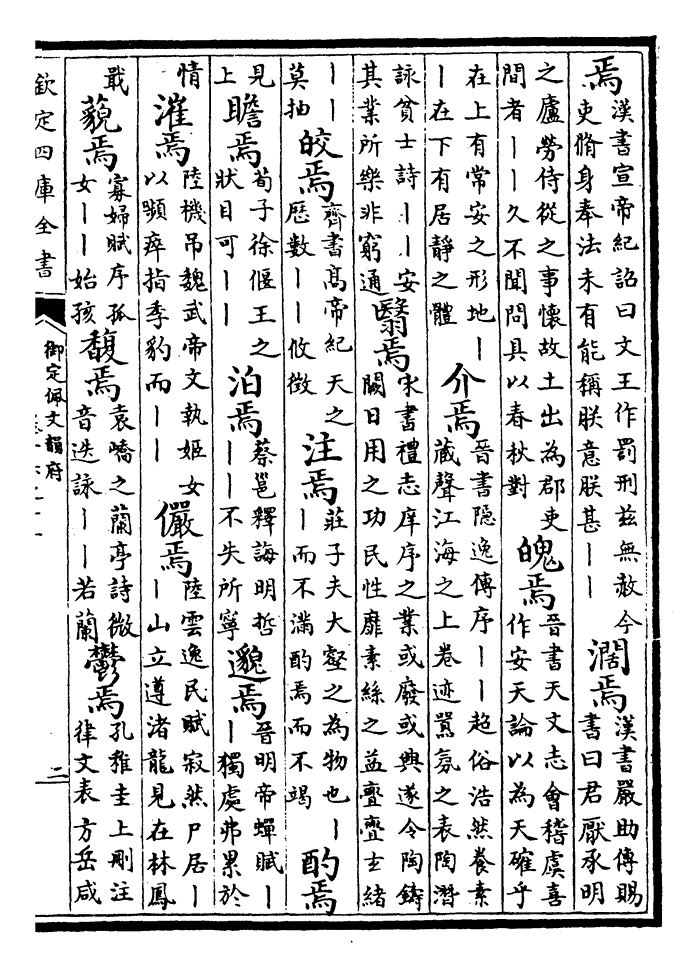 焉漢書宣帝紀詔曰文王作罰刑兹無赦今吏脩身奉法未有能稱朕意朕甚丨丨濶焉漢書嚴助傳賜書曰君厭承明
之廬勞侍從之事懷故土出為郡吏間者丨丨久不聞問具以春秋對魄焉晉書天文志會稽虞喜作安天論以為天確乎
在上有常安之形地丨丨在下有居靜之體介焉晉書隱逸傳序丨丨超俗浩然養素藏聲江海之上卷迹囂氛之表陶潛
詠貧士詩丨丨安其業所樂非窮通翳焉宋書禮志庠序之業或廢或興遂令陶鑄闕日用之功民性靡素絲之益亹亹玄緒
丨丨莫抽皎焉齊書高帝紀天之歴數丨丨攸徴注焉莊子夫大壑之為物也丨丨而不滿酌焉而不竭酌焉
見上瞻焉荀子徐偃王之狀目可丨丨泊焉蔡邕釋誨明哲丨丨不失所寧邈焉晉明帝蟬賦丨丨獨處弗累於
情漼焉陸機弔魏武帝文執姬女以嚬瘁指季豹而丨丨儼焉陸雲逸民賦寂然尸居丨丨山立遵渚龍見在林鳳
戢藐焉寡婦賦序孤女丨丨始孩馥焉袁嶠之蘭亭詩微音迭詠丨丨若蘭鬱焉孔稚圭上刪注律文表方岳咸
欽定四庫全書
御定佩文韻府
二